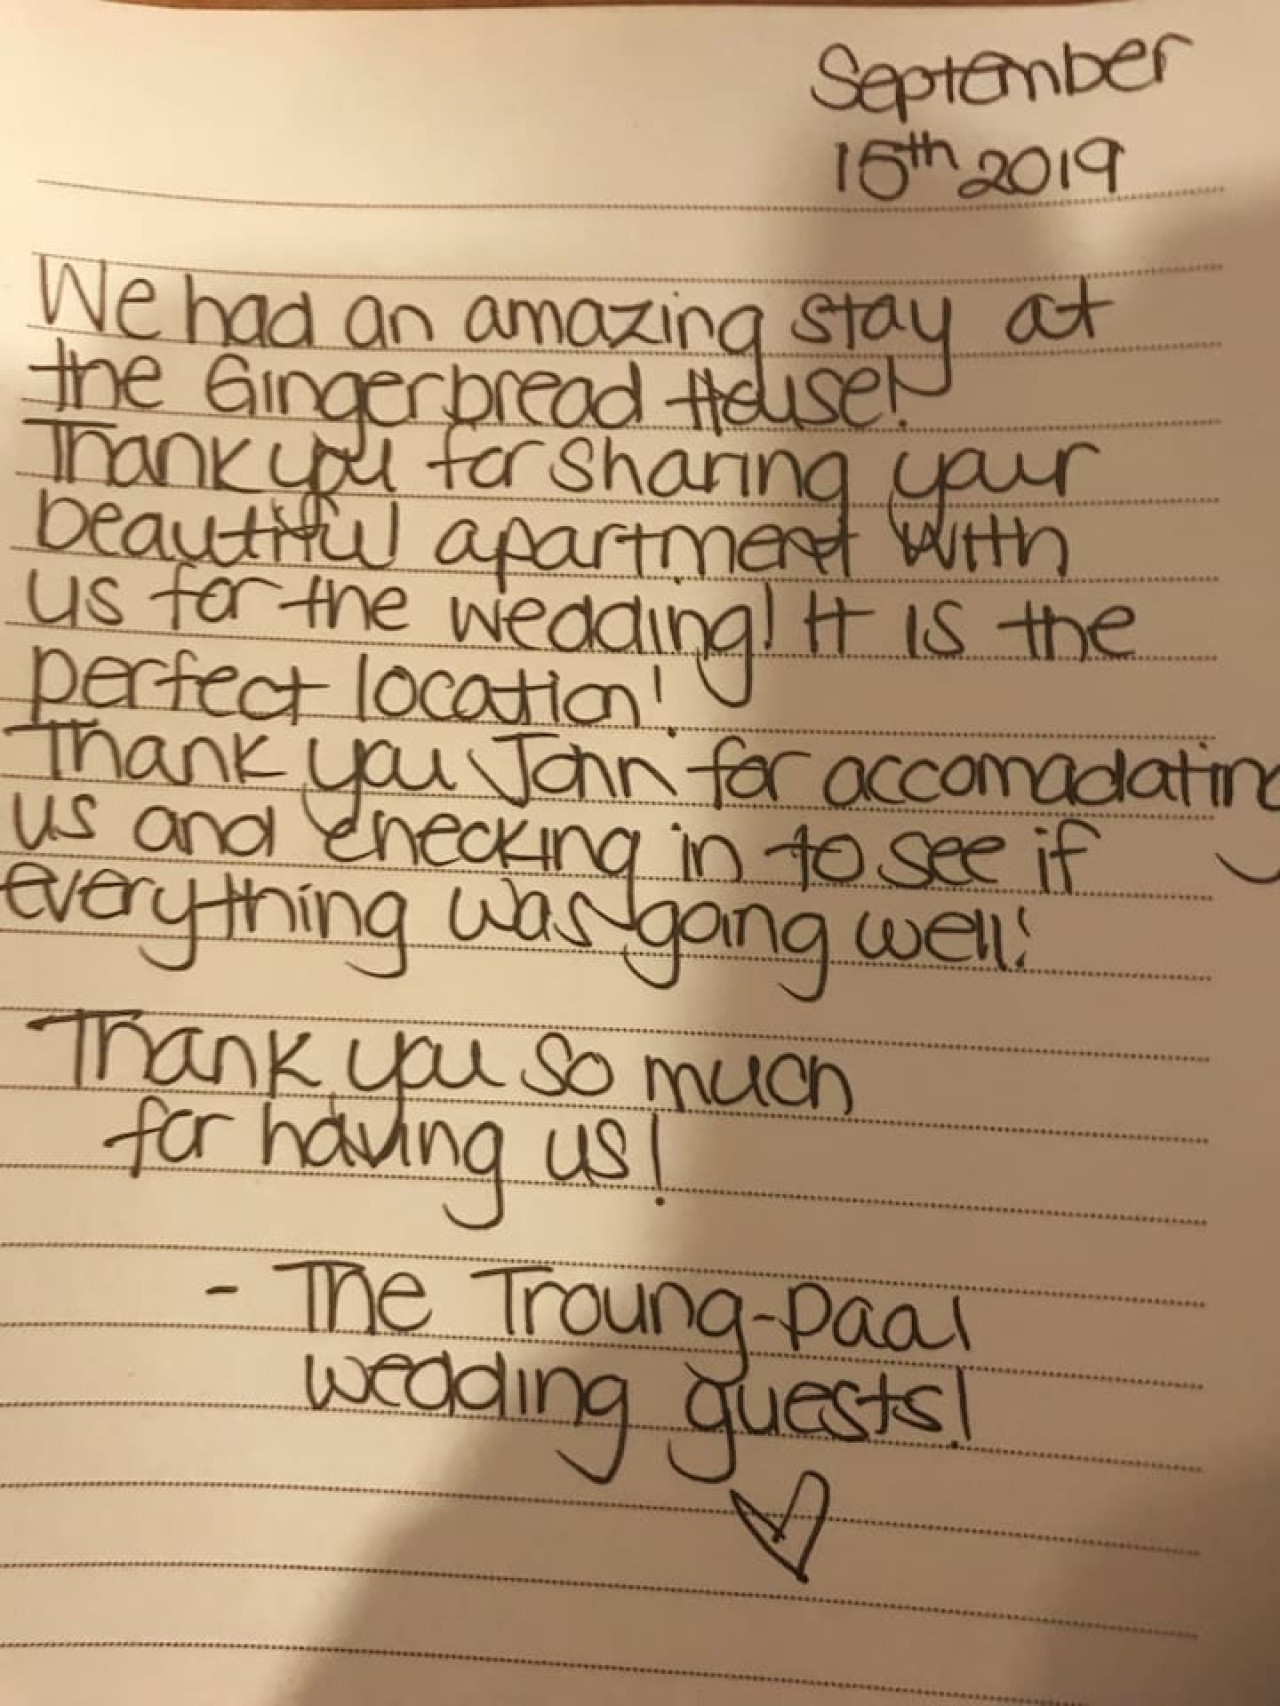 September
15th 2019
We had an amazing stay at
the Gingerbread House!
Thank you for sharing your
beautiful apartment with
us for the wedding! It is the
perfect location!
Thank you John for accomadating
us and checking in to see if
everything was going well!
Thank you so much
for having us!
- The Troung-Paal
wedding guests!